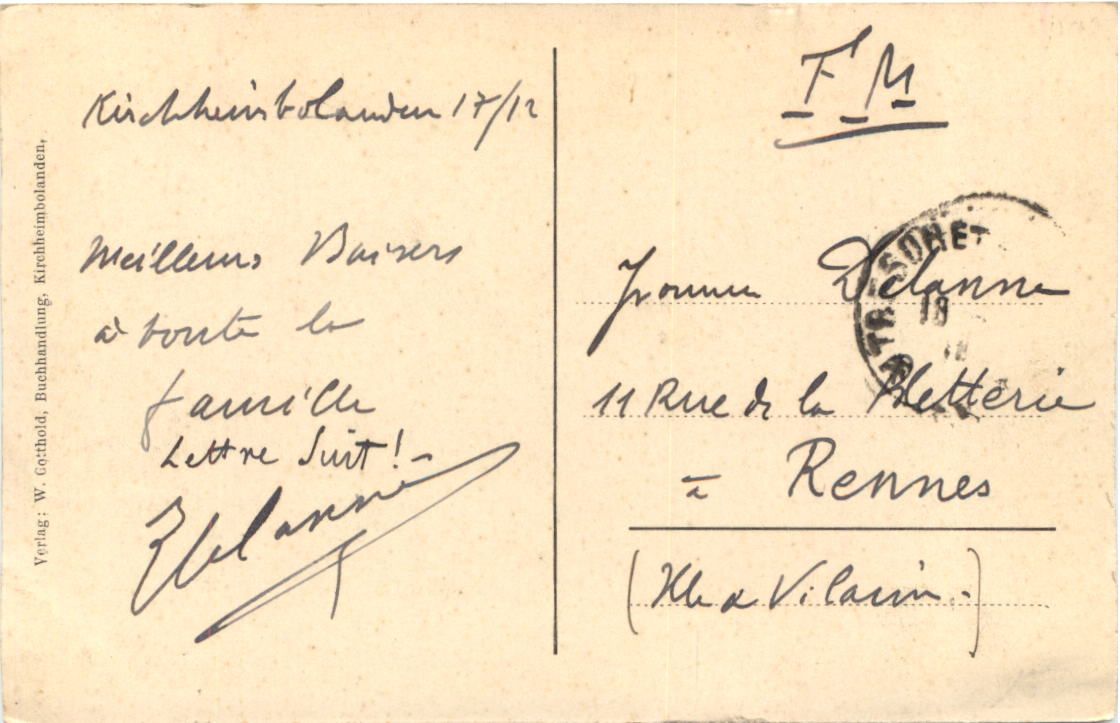 Verlag: W. Gotthold, Buchhandlung, Kirchheimbolanden,
Kirchheimbolanden 17/12
Meilleurs Baisers
à toute la
famille
Lettre suit! -
Delanne
F M
TRESOR ET
18
Delanne
11 Rue de la
à Rennes
(Ille & Vilaine.-)